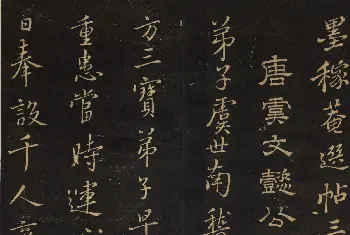 墨稼菴選帖三
唐虞文懿公
弟子虞世南稽
方三寶弟子早
重患當時運
日奉設千人